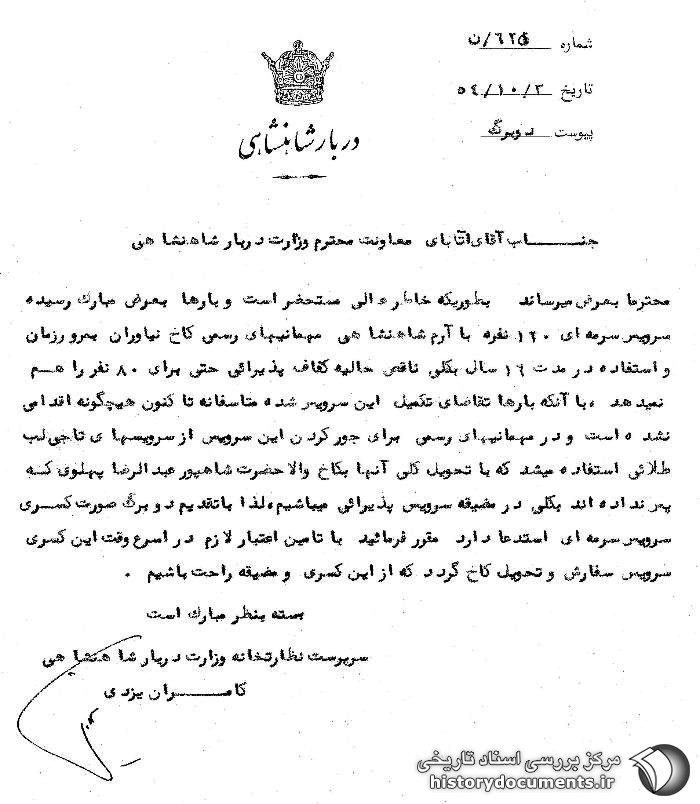 شماره ۶۲۵/ن
تاریخ ۵۴/۱۰/۲
پیوست دوبرگ
دربار شاهنشاهی
جنـــاب آقای اتابای معاونت محترم وزارت دربار شاهنشاهی
محترما بعرض میرساند بطوریکه خاطر عالی مستحضر است و بارها بعرض مبارک رسیده
سرویس سرمه ای ۱۲۰ نفره با آرم شاهنشاهی مهمانیهای رسمی کاخ نیاوران بمرور زمان
و استفاده در مدت ۱۶ سال بکلی ناقص حالیه کفاف پذیرائی حتی برای ۸۰ نفر را هم
نمیدهد ، با آنکه بارها تقاضای تکمیل این سرویس شده متاسفانه تا کنون هیچگونه اقدامی
نشده است و در مهمانیهای رسمی برای جور کردن این سرویس از سرویسهای تاجی لب
طلائی استفاده میشد که با تحویل کلی آنها بکاخ والاحضرت شاهپور عبدالرضا پهلوی که
پس نداده اند بکلی در مضیقه سرویس پذیرائی میباشیم ، لذا باتقدیم دو برگ صورت کسری
سرویس سرمه ای استدعا دارد مقرر فرمائید با تامین اعتبار لازم در اسرع وقت این کسری
سرویس سفارش و تحویل کاخ گردد که از این کسری و مضیقه راحت باشیم .
بسته بنظر مبارک است
سرپرست نظارتخانه وزارت دربار شاهنشاهی
کامـــران یزدی
مرکز بررسی اسناد تاریخی
historydocuments.ir